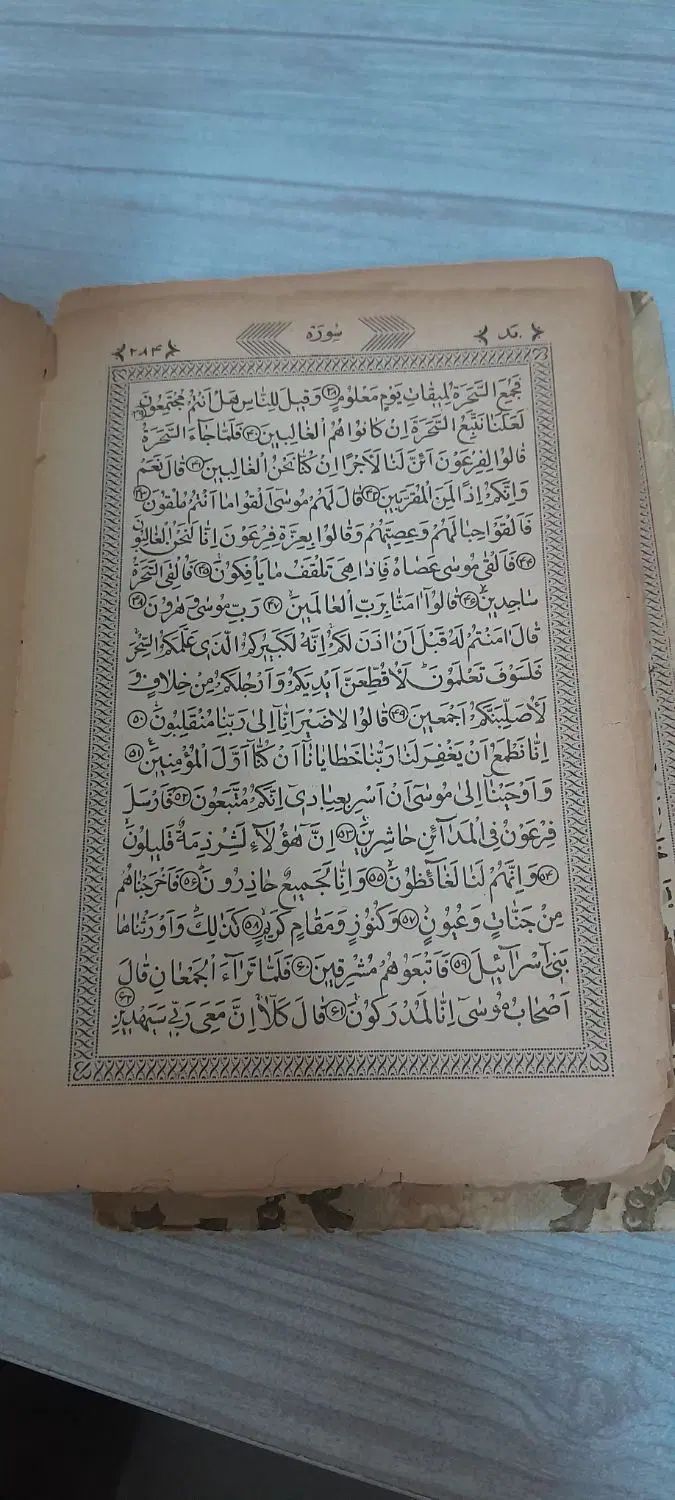 سُورَة
۲۸۴
فَجُمِعَ السَّحَرَةُ لِمِيقَاتِ يَوْمٍ مَعْلُومٍ ۳۸ وَقِيلَ لِلنَّاسِ هَلْ اَنْتُمْ مُجْتَمِعُونَ ۳۹
لَعَلَّنَا نَتَّبِعُ السَّحَرَةَ اِنْ كَانُوا هُمُ الْغَالِبِينَ ۴۰ فَلَمَّا جَاءَ السَّحَرَةُ
قَالُوا لِفِرْعَوْنَ اَئِنَّ لَنَا لَاَجْرًا اِنْ كُنَّا نَحْنُ الْغَالِبِينَ ۴۱ قَالَ نَعَمْ
وَاِنَّكُمْ اِذًا لَمِنَ الْمُقَرَّبِينَ ۴۲ قَالَ لَهُمْ مُوسٰى اَلْقُوا مَا اَنْتُمْ مُلْقُونَ ۴۳
فَاَلْقَوْا حِبَالَهُمْ وَعِصِيَّهُمْ وَقَالُوا بِعِزَّةِ فِرْعَوْنَ اِنَّا لَنَحْنُ الْغَالِبُونَ
۴۴ فَاَلْقٰى مُوسٰى عَصَاهُ فَاِذَا هِيَ تَلْقَفُ مَا يَأْفِكُونَ ۴۵ فَاُلْقِيَ السَّحَرَةُ
سَاجِدِينَ ۴۶ قَالُوا اٰمَنَّا بِرَبِّ الْعَالَمِينَ ۴۷ رَبِّ مُوسٰى وَهٰرُونَ ۴۸
قَالَ اٰمَنْتُمْ لَهُ قَبْلَ اَنْ اٰذَنَ لَكُمْ اِنَّهُ لَكَبِيرُكُمُ الَّذِي عَلَّمَكُمُ السِّحْرَ
فَلَسَوْفَ تَعْلَمُونَ لَاُقَطِّعَنَّ اَيْدِيَكُمْ وَاَرْجُلَكُمْ مِنْ خِلَافٍ وَ
لَاُصَلِّبَنَّكُمْ اَجْمَعِينَ ۴۹ قَالُوا لَا ضَيْرَ اِنَّا اِلٰى رَبِّنَا مُنْقَلِبُونَ ۵۰
اِنَّا نَطْمَعُ اَنْ يَغْفِرَ لَنَا رَبُّنَا خَطَايَانَا اَنْ كُنَّا اَوَّلَ الْمُؤْمِنِينَ ۵۱
وَاَوْحَيْنَا اِلٰى مُوسٰى اَنْ اَسْرِ بِعِبَادِي اِنَّكُمْ مُتَّبَعُونَ ۵۲ فَاَرْسَلَ
فِرْعَوْنُ فِي الْمَدَائِنِ حَاشِرِينَ ۵۳ اِنَّ هٰؤُلَاءِ لَشِرْذِمَةٌ قَلِيلُونَ
۵۴ وَاِنَّهُمْ لَنَا لَغَائِظُونَ ۵۵ وَاِنَّا لَجَمِيعٌ حَاذِرُونَ ۵۶ فَاَخْرَجْنَاهُمْ
مِنْ جَنَّاتٍ وَعُيُونٍ ۵۷ وَكُنُوزٍ وَمَقَامٍ كَرِيمٍ ۵۸ كَذٰلِكَ وَاَوْرَثْنَاهَا
بَنِي اِسْرَائِيلَ ۵۹ فَاَتْبَعُوهُمْ مُشْرِقِينَ ۶۰ فَلَمَّا تَرَاءَ الْجَمْعَانِ قَالَ
اَصْحَابُ مُوسٰى اِنَّا لَمُدْرَكُونَ ۶۱ قَالَ كَلَّا اِنَّ مَعِيَ رَبِّي سَيَهْدِينِ ۶۲